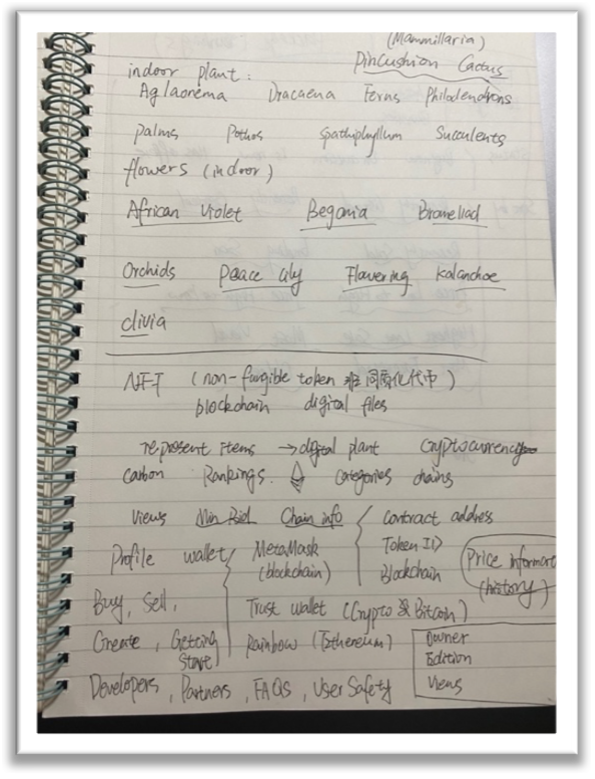 (Mammillaria)
indoor plant: Pincushion Cactus
Aglaonema Dracaena Ferns Philodendrons
palms Pothos Spathiphyllum Succulents
flowers (indoor)
African Violet Begonia Bromeliad
Orchids Peace Lily Flowering Kalanchoe
clivia
NFT (non-fungible token 非同质化代币)
blockchain digital files
represent items → digital plant Cryptocurrency
Carbon Rankings. categories chains
Views Min Bid Chain info contract address
Profile wallet MetaMask Token ID Price informat
(blockchain) Blockchain (history)
Buy, Sell, Trust wallet (Crypto 及 Bitcoin)
Create, Getting Start Rainbow (Ethereum) Owner
Edition
Developers, Partners, FAQs, User Safety Views